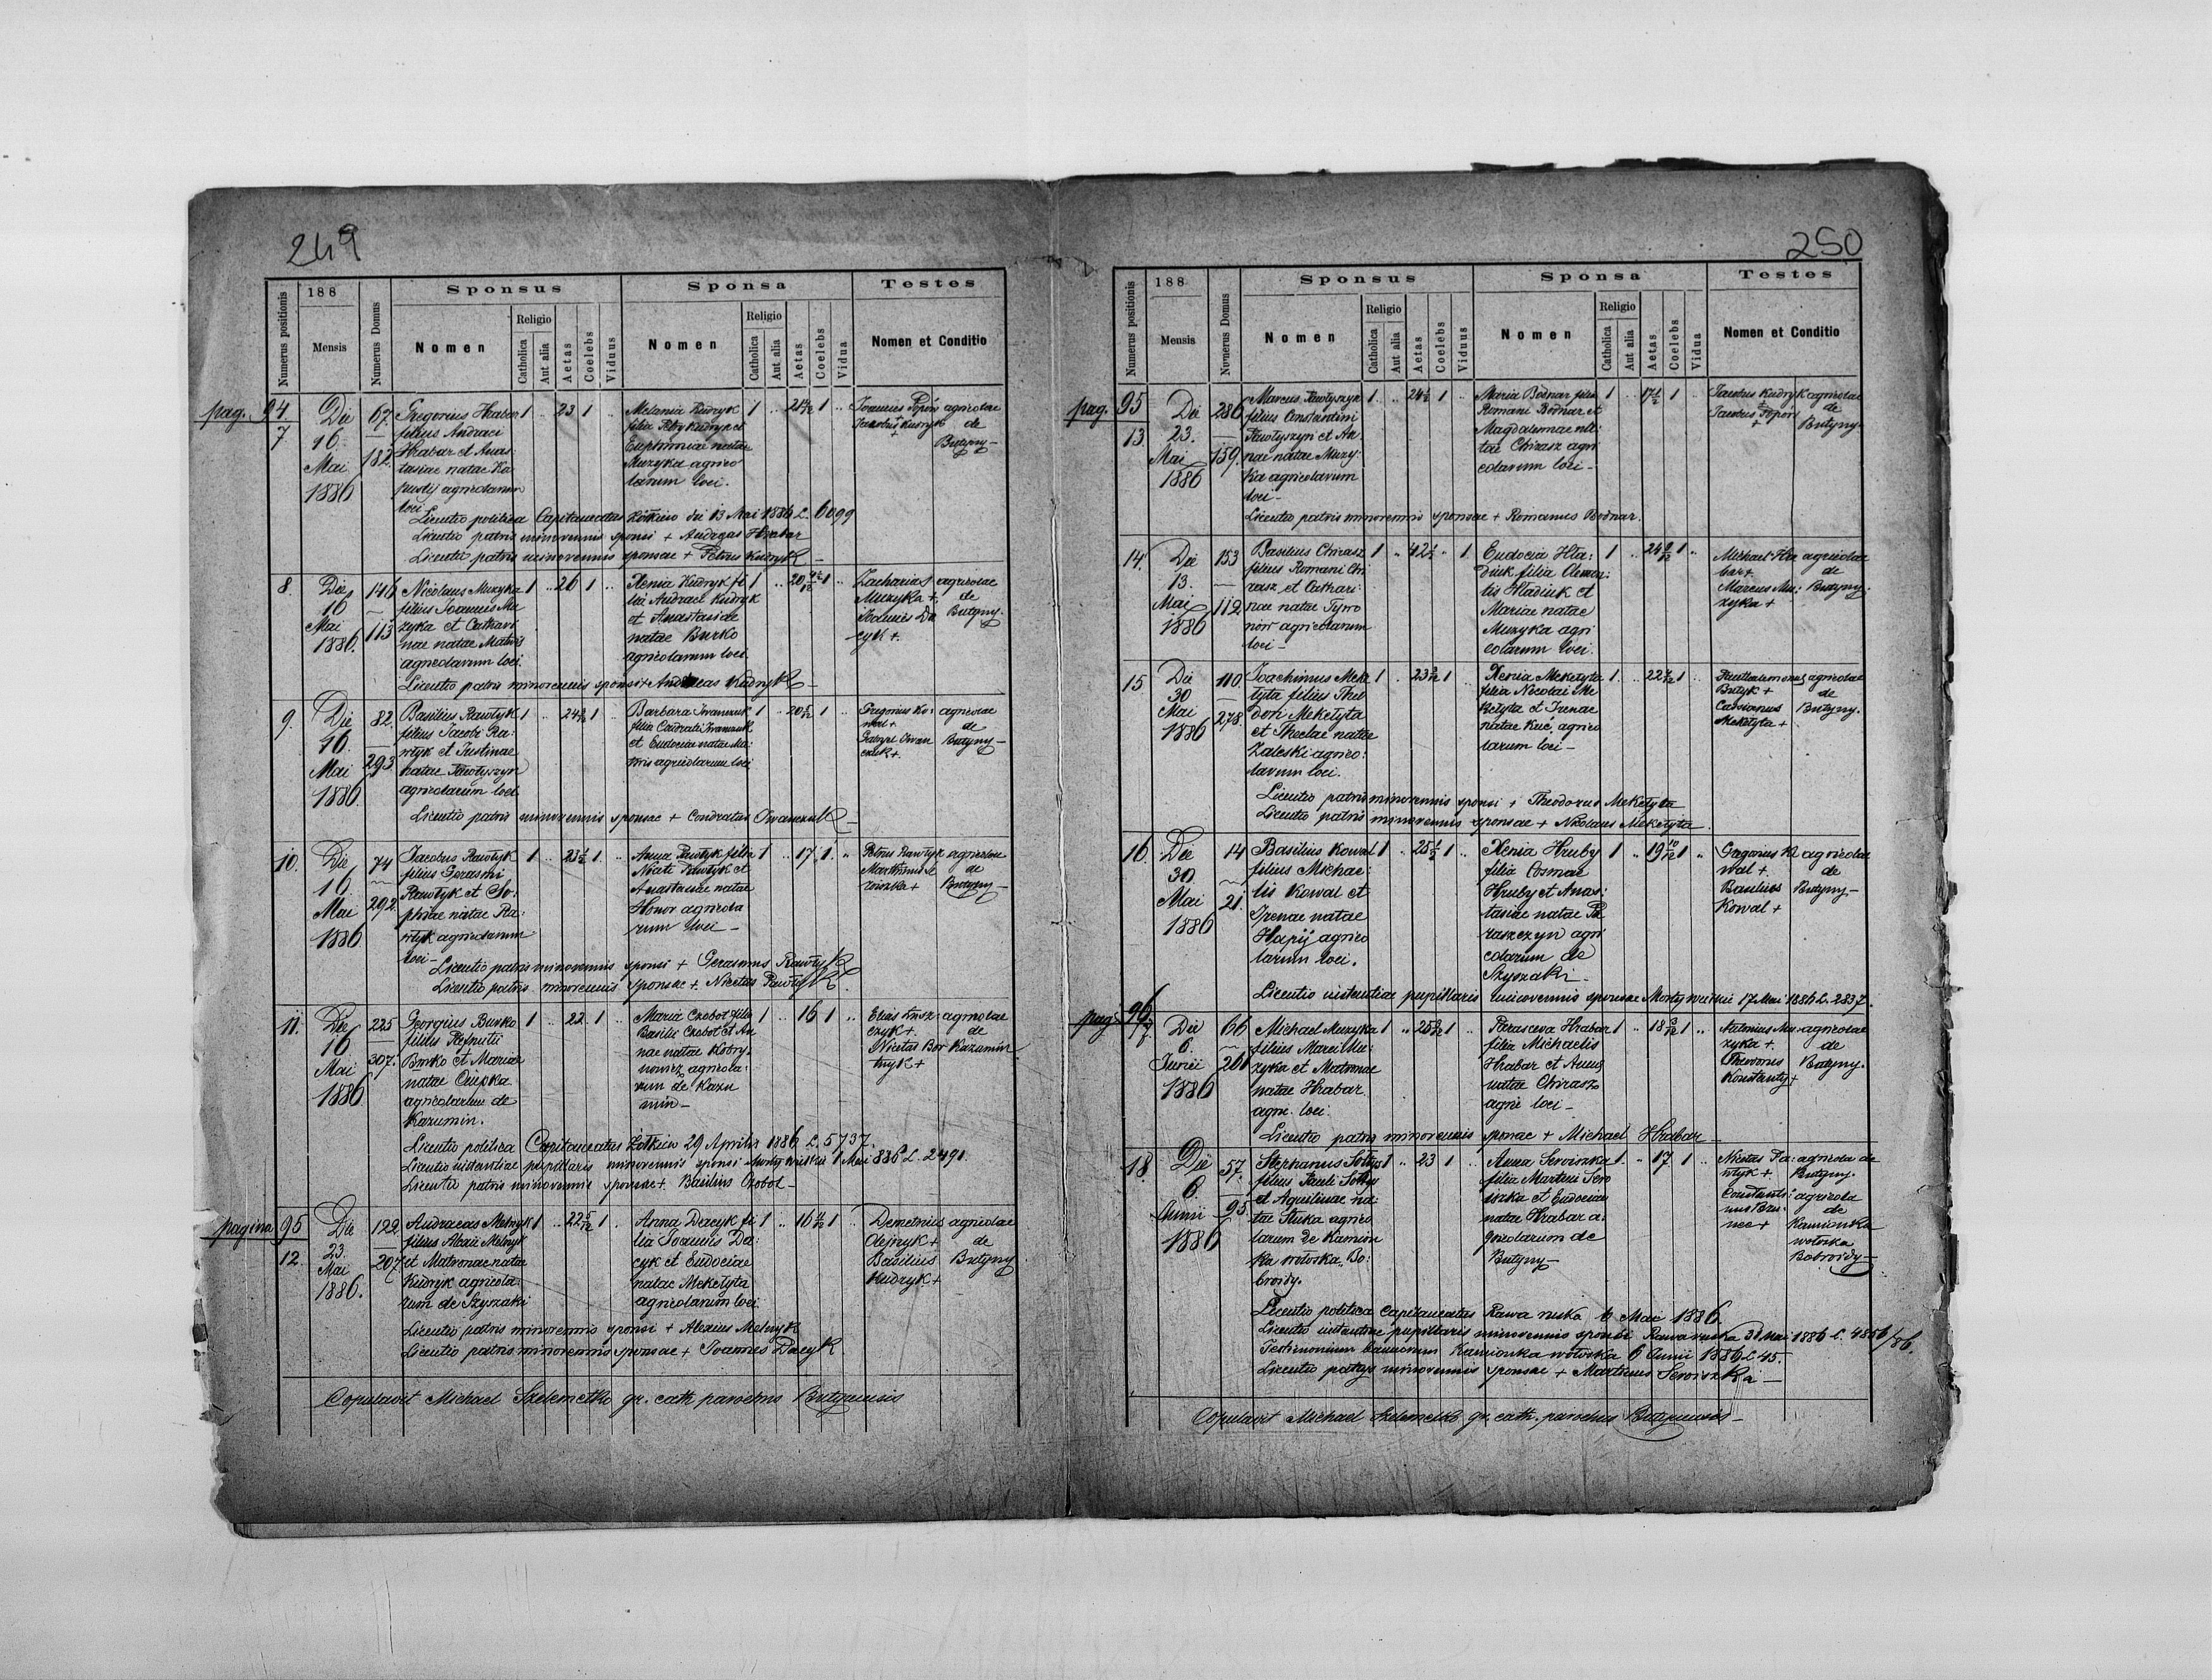 249
Numerus positionis
188
Mensis
Numerus Domus
Sponsus
Nomen
Religio
Catholica
Aut alia
Aetas
Coelebs
Viduus
Sponsa
Nomen
Religio
Catholica
Aut alia
Aetas
Coelebs
Vidua
Testes
Nomen et Conditio
pag. 94
7
Die
16
Mai
1886
67.
182.
Gregorius Hrabar
filius Andraei
Hrabar et Anas
tasiae natae Ka
pustij agricolarum
loci
1 .. 23 1 ..
Melania Kudryk
filia Petri Kudryk et
Euphimiae natae
Muzyka agrico
larum loci.
1 .. 1 ..
Joannes Popów agricolae
Jacobus Kudryk de
+ Butyny
Licentio politica Capitaneatus Żółkiew dei 13 Mai 1886 L. 6099
Licentio patris minorennis sponsi + Andreas Hrabar
Licentio patris minorennis sponsae + Petrus Kudryk
8.
Die
16
Mai
1886.
146
113
Nicolaus Muzyka
filius Joannis Mu
zyka et Cathari
nae natae Matwis
agricolarum loci.
1 .. 26 1 ..
Xenia Kudryk fi
lia Andraei Kudryk
et Anastasiae
natae Burko
agricolarum loci.
1 .. 1 ..
Zacharias agricolae
Muzyka + de
Joannes Da Butyny
cyk +.
Licentio patris minorennis sponsi + Andreas Kudryk
9.
Die
16.
Mai
1886
82.
293.
Basilius Pawłyk
filius Jacobi Pa:
włyk et Justinae
natae Pawłyszyn
agricolarum loci
1 .. 1 ..
Barbara Iwanczuk
filia Condrati Iwanczuk
et Eudociae natae Ma:
twis agricolarum loci
1 .. 1 ..
Gregorius Ko: agricolae
wal + de
Iwan Butyny
czuk +.
Licentio patris minorennis sponsae + Condratus Iwanczuk
10.
Die
16.
Mai
1886
74
292.
Jacobus Pawłyk
filius Gerasmi
Pawłyk et So:
phiae natae Pa:
włyk agricolarum
loci
1 .. 23 1/2 1 ..
Anna Pawłyk filia
Pawłyk et
Anastasiae natae
agricola
rum loci
1 .. 17 1. ..
Petrus Pawłyk agricolae
Martinus Se de
roiszka + Butyny
Licentio patris minorennis sponsi + Gerasmus Pawłyk
Licentio patris minorennis sponsae + Nicetas Pawłyk
11.
Die
16
Mai
1886
225
307.
Georgius Burko
filius
Burko et Mariae
natae Ciupka
agricolarum de
Kazumin.
1 .. 22 1 ..
Maria Czobot filia
Basilii Czobot et An
nae natae Kobry:
nowicz agricola:
rum de Kazu
min
1 .. 16 1 ..
Elias agricolae
czyk +. de
Nicetas Bor Kazumin
tnyk +
Licentio politica Capitaneatus Żółkiew 29 Aprilis 1886 L. 5737.
Licentio instantiae pupillaris minorennis sponsi Mosty wielkie 1 Mai 886 L. 2491.
Licentio patris minorennis sponsae +. Basilius Czobot
pagina 95
12
Die
23.
Mai
1886.
122
207
Andraeas Melnyk
filius Alexii Melnyk
et Matronae natae
Kudryk agricola
rum de Szyszaki
1 .. 22 5/12 1 ..
Anna Dacyk fi
lia Joannis Da:
cyk et Eudociae
natae Mekełyta
agricolarum loci.
1 .. 16 1 ..
Demetrius agricolae
Olejnyk + de
Basilius Butyny
Kudryk +
Licentio patris minorennis sponsi + Alexius Melnyk
Licentio patris minorennis sponsae + Joannes Dacyk
Copulavit Michael Szelemetko gr. cath. parochus Butynensis
250
Numerus positionis
188
Mensis
Novnerus Domus
Sponsus
Nomen
Religio
Catholica
Aut alia
Aetas
Coelebs
Viduus
Sponsa
Nomen
Religio
Catholica
Aut alia
Aetas
Coelebs
Vidua
Testes
Nomen et Conditio
pag. 95
13.
Die
23.
Mai
1886
286
159.
Marcus Pawłyszyn
filius Constantini
Pawłyszyn et An
nae natae Muzy:
ka agricolarum
loci
1. .. 1 ..
Maria Bodnar filia
Romani Bodnar et
Magdalenae na:
tae Chirasz agri
colarum loci
1 .. 1 ..
Jacobus Kudryk agricolae
+ de
Jacobus Popow Butyny
+
Licentio patris minorennis sponsae + Romanus Bodnar.
14.
Die
13.
Mai
1886
153
112
Basilius Chirasz
filius Romani Chi
rasz et Cathari:
nae natae Tywo
niw agricolarum
loci
1 .. 42 1/2 .. 1.
Eudocia Hła:
diuk filia Clemen:
tis Hładiuk et
Mariae natae
Muzyka agri
colarum loci.
1 .. 1 ..
Michael Hra agricolae
bar +. de
Marcus Mu: Butyny.
zyka +
15
Die
30
Mai
1886
110.
278.
Joachimus Meke
łyta filius Theo
dori Mekełyta
et Theclae natae
Zaleski agrico:
larum loci.
1 .. 1 ..
Xenia Mekełyta
filia Nicolai Me
kełyta et Irenae
natae Kuć agrico
larum loci
1. .. 1 ..
Panthalemones agricolae
Butyk + de
Cassianus Butyny.
Mekełyta +
Licentio patris minorennis sponsi + Theodorus Mekełyta
Licentio patris minorennis sponsae + Nicolaus Mekełyta
16.
Die
30
Mai
1886
14
21.
Basilius Kowal
filius Michae:
lis Kowal et
Irenae natae
Hapij agrico
larum loci.
1 .. 25 1/2 1 ..
Xenia Hruby
filia Cosmae
Hruby et Anas:
tasiae natae Pa
raszczyn agri
colarum de
Szyszaki
1 .. 19 10/12 1 ..
Gregorius Ko agricolae
wal +. de
Basilius Butyny
Kowal +
Licentio instantiae pupillaris minorennis sponsae Mosty wielkie 17 Mai 1886 L. 2837.
pag. 96
17.
Die
6.
Junii
1886
66
261
Michael Muzyka
filius Marci Mu:
zyka et Matronae
natae Hrabar
agri. loci.
1 .. 1 ..
Parasceva Hrabar
filia Michaelis
Hrabar et Annae
natae Chirasz
agri loci
1 .. 18 3/12 1 ..
Antonius Mu: agricolae
zyka +. de
Theodorus Butyny.
Konstanty +
Licentio patris minorennis sponsae + Michael Hrabar
18.
Die
6.
Junii
1886
57.
95.
Stephanus Sołtys
filius Pauli Sołtys
et Aquilinae na
tae Stuka agrico
larum de Kamion
ka wołoska, Bo:
broidy.
1 .. 23 1 ..
Anna Seroiszka
filia Martini Sero
iszka et Eudociae
natae Hrabar a:
gricolarum de
Butyny
1. .. 17 1 ..
Nicetas Pa: agricola de
włyk + Butyny.
Constanti: agricola
nus de
nec + Kamionka
wołoska
Bobroidy
Licentio politica Capitaneatus Rawa ruska 6 Mai 1886.
Licentio instantiae pupillaris minorennis sponsi Rawa ruska 31 Mai 1886 L. 4856/86.
Testimonium bannorum Kamionka wołoska 6 Junii 1886 L. 45.
Licentio patris minorennis sponsae + Martinus Seroiszka
Copulavit Michael Szelemetko gr. cath. parochus Butynensis